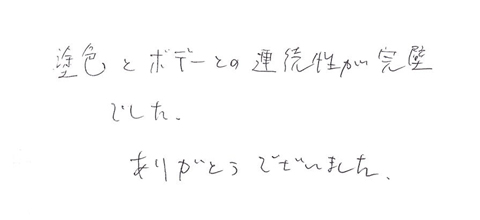 塗色とボデーとの連続性が完璧
でした。
ありがとうございました。